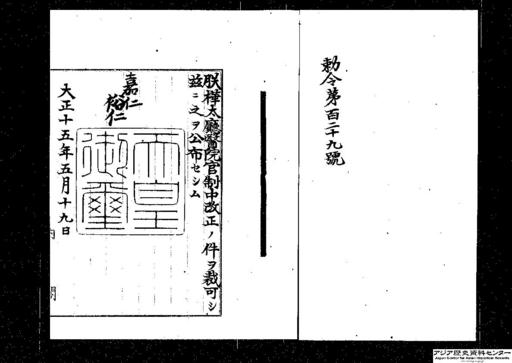 勅令第百二十九號
朕樺太廳醫院官制中改正ノ件ヲ裁可シ
茲ニ之ヲ公布セシム
嘉仁
裕仁
天皇
御璽
大正十五年五月十九日
内閣
アジア歴史資料センター
Japan Center for Asian Historical Records